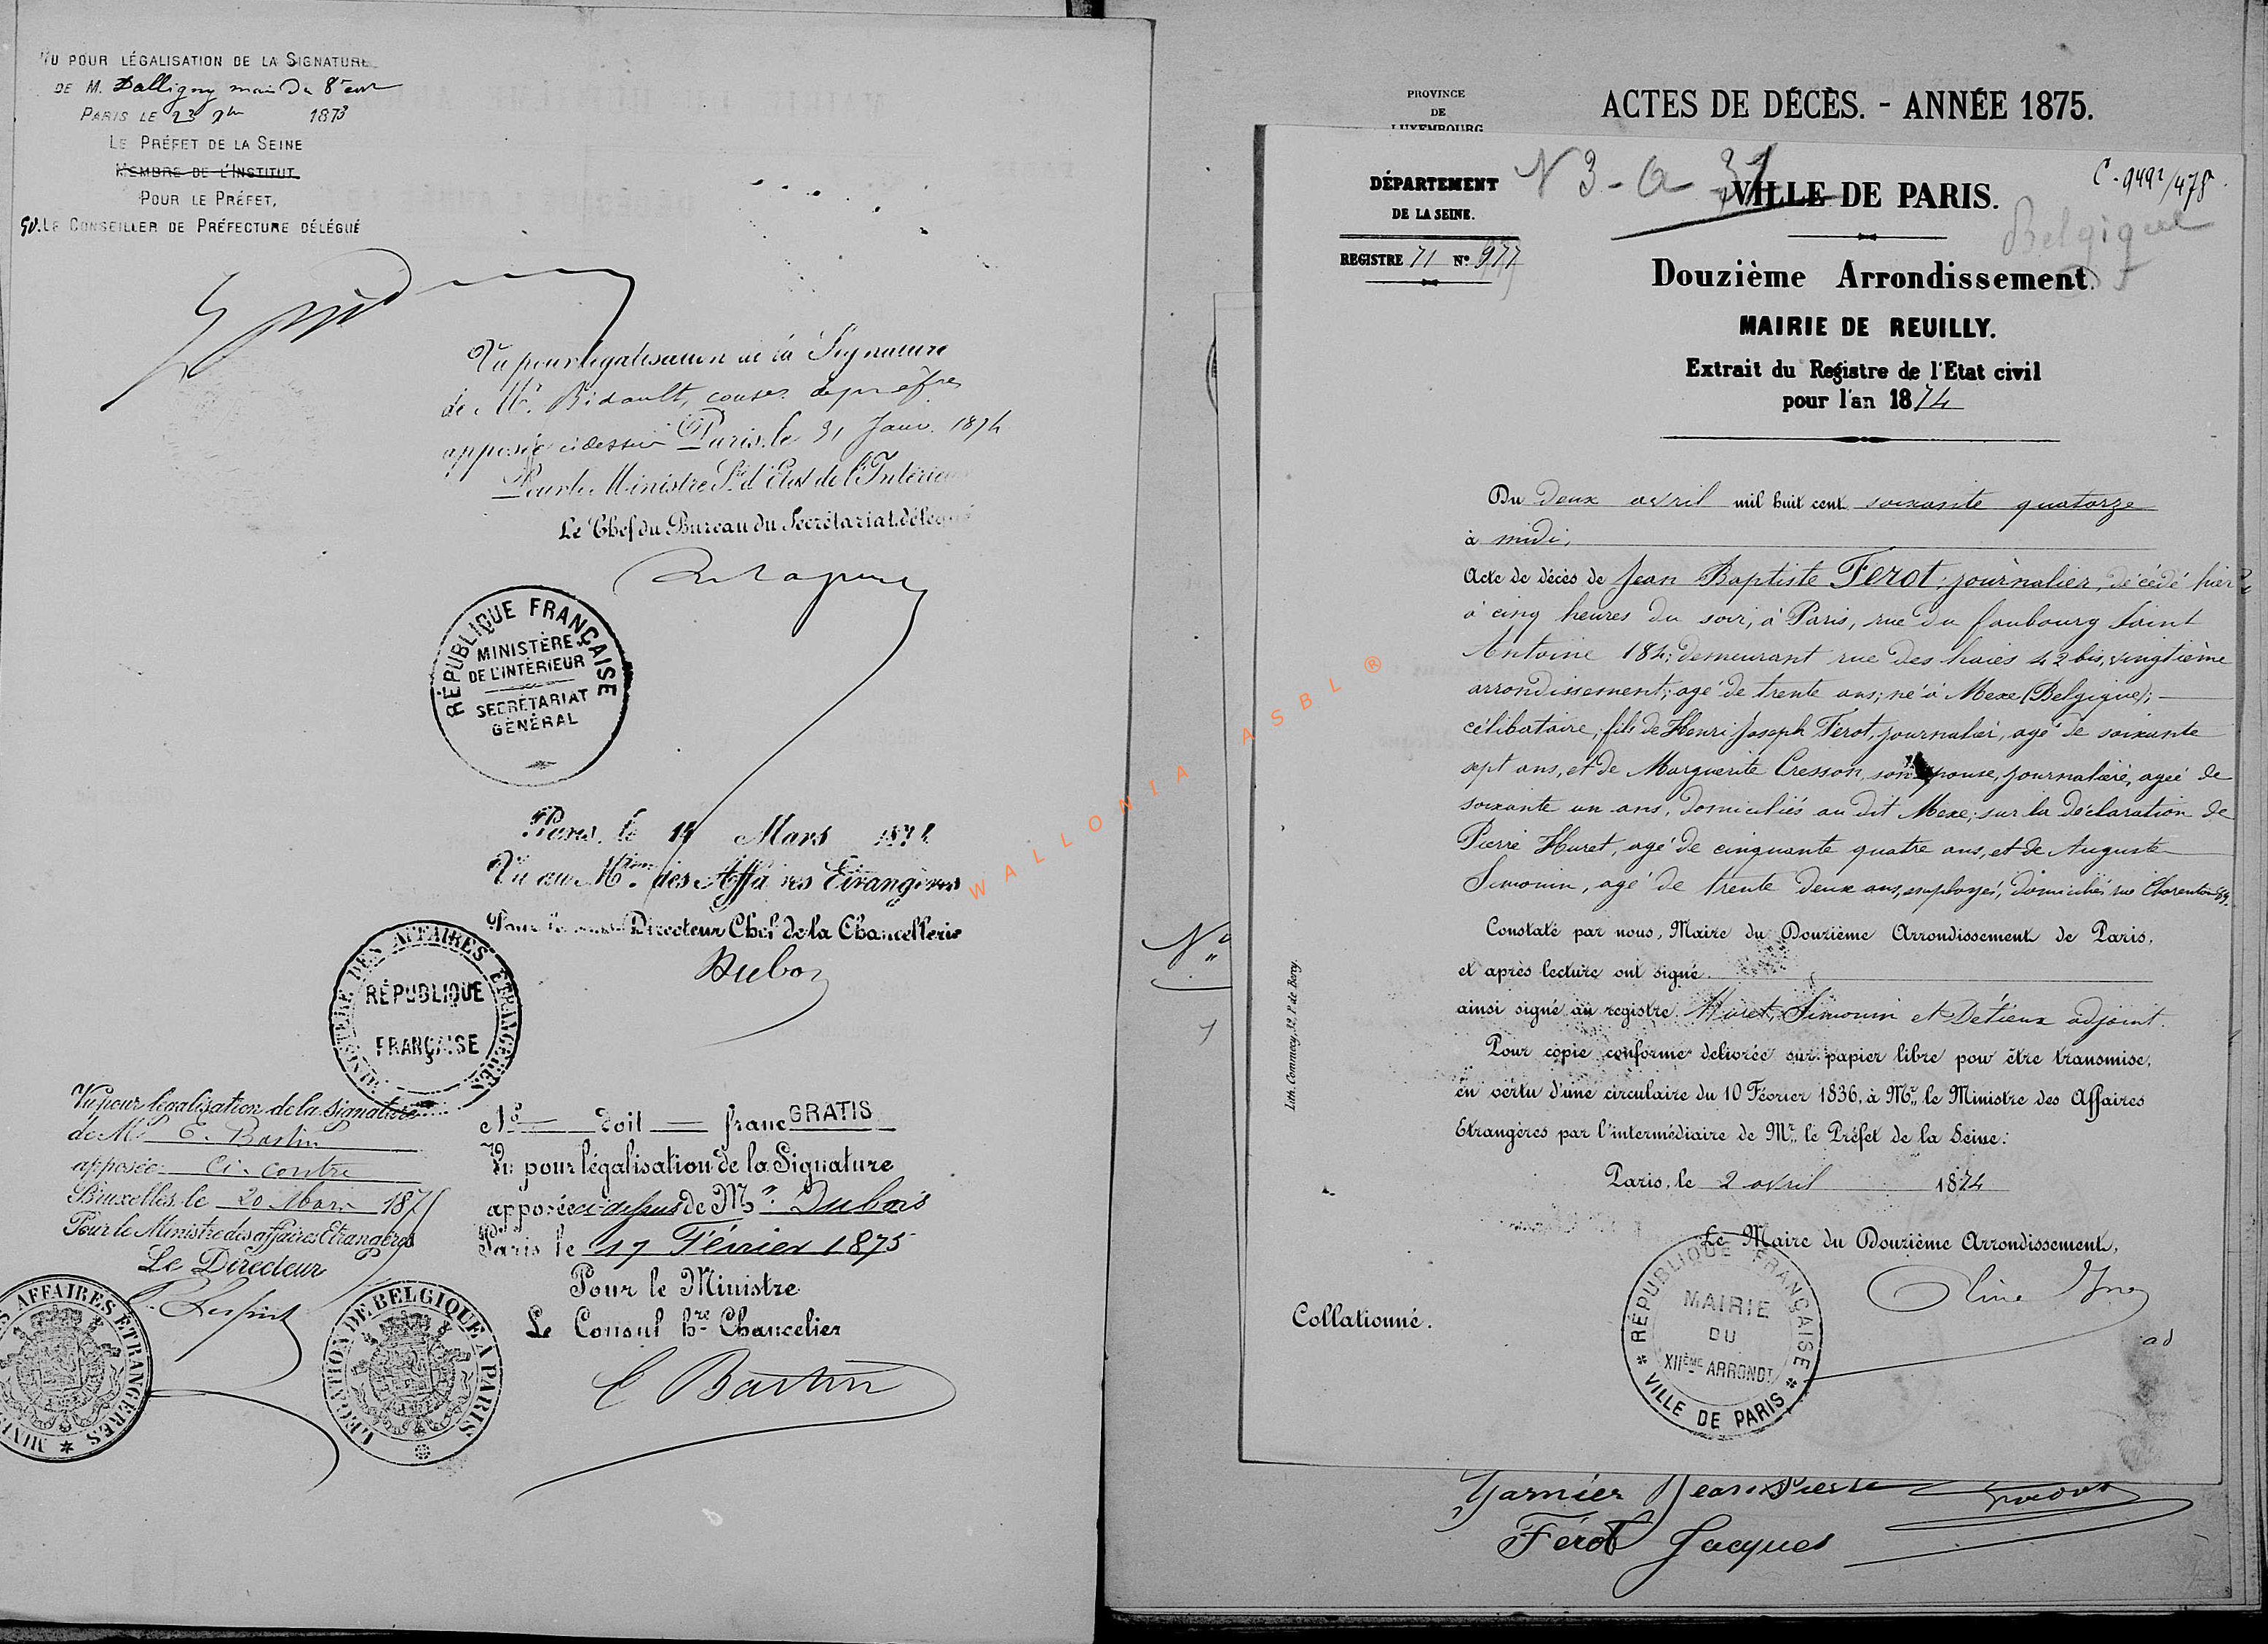 VU POUR LÉGALISATION DE LA SIGNATURE
DE M. Dalligny maire du 8e arr
PARIS LE 23 1873
LE PRÉFET DE LA SEINE
MEMBRE DE L'INSTITUT
POUR LE PRÉFET,
LE CONSEILLER DE PRÉFECTURE DÉLÉGUÉ
Vu pour légalisation de la Signature
de Mr. Bidault, conser de préfre
apposée ci dessus Paris, le 31 Janv. 1874
Pour le Ministre St. d'Etat de l'Intérieur
Le Chef du Bureau du Secrétariat délégué
RÉPUBLIQUE FRANÇAISE
MINISTÈRE
DE L'INTÉRIEUR
SECRÉTARIAT
GÉNÉRAL
Paris, le 14 Mars
Vu au Mtère des Affaires Etrangères
Pour le Directeur Chef de la Chancellerie
Dubois
MINISTÈRE DES AFFAIRES ÉTRANGÈRES
RÉPUBLIQUE
FRANÇAISE
Vu pour légalisation de la signature
de Mr. E. Bastin
apposée ci-contre
Bruxelles, le 20 Mars 1875
Pour le Ministre des affaires Etrangères
Le Directeur
MINISTÈRE DES AFFAIRES ÉTRANGÈRES
LÉGATION DE BELGIQUE À PARIS
No — doit — franc GRATIS
Vu pour légalisation de la Signature
apposée ci-dessus de Mr. Dubois
Paris le 17 Février 1875
Pour le Ministre
Le Consul hre Chancelier
E Bastin
WALLONIA ASBL ®
PROVINCE
DE
LUXEMBOURG
ACTES DE DÉCÈS. - ANNÉE 1875.
DÉPARTEMENT
DE LA SEINE.
REGISTRE 71 No 977
N 3 - a - 31
VILLE DE PARIS.
C-9492/478
Belgique
Douzième Arrondissement.
MAIRIE DE REUILLY.
Extrait du Registre de l'Etat civil
pour l'an 1874
Du deux avril mil huit cent soixante quatorze
à midi,
Acte de décès de Jean Baptiste Ferot, journalier, décédé hier
à cinq heures du soir, à Paris, rue du faubourg Saint
Antoine 184; demeurant rue des haies 42 bis, vingtième
arrondissement; agé de trente ans; né à Mexe (Belgique);
célibataire, fils de Henri Joseph Férot, journalier, agé de soixante
sept ans, et de Marguerite Cresson, son épouse, journalière, agée de
soixante un ans, domiciliés au dit Mexe; sur la déclaration de
Pierre Huret, agé de cinquante quatre ans, et de Auguste
Simonin, agé de trente deux ans, employés, domiciliés rue Charenton 89.
Constaté par nous, Maire du Douzième Arrondissement de Paris,
et après lecture ont signé.
ainsi signé au registre. Huret, Simonin et Détieux adjoint.
Pour copie conforme délivrée sur papier libre pour être transmise,
en vertu d'une circulaire du 10 Février 1836, à Mr. le Ministre des Affaires
Etrangères par l'intermédiaire de Mr. le Préfet de la Seine.
Paris, le 2 avril 1874
Le Maire du Douzième Arrondissement,
Collationné.
RÉPUBLIQUE FRANÇAISE
MAIRIE
DU
XIIÈME ARRONDT
VILLE DE PARIS
ad
Lith. Commecy, 12, P. de Bercy.
No
Garnier Jean-Pierre
Férot Jacques